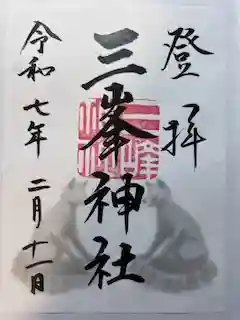 登拝
三峯神社
令和七年 二月十一日